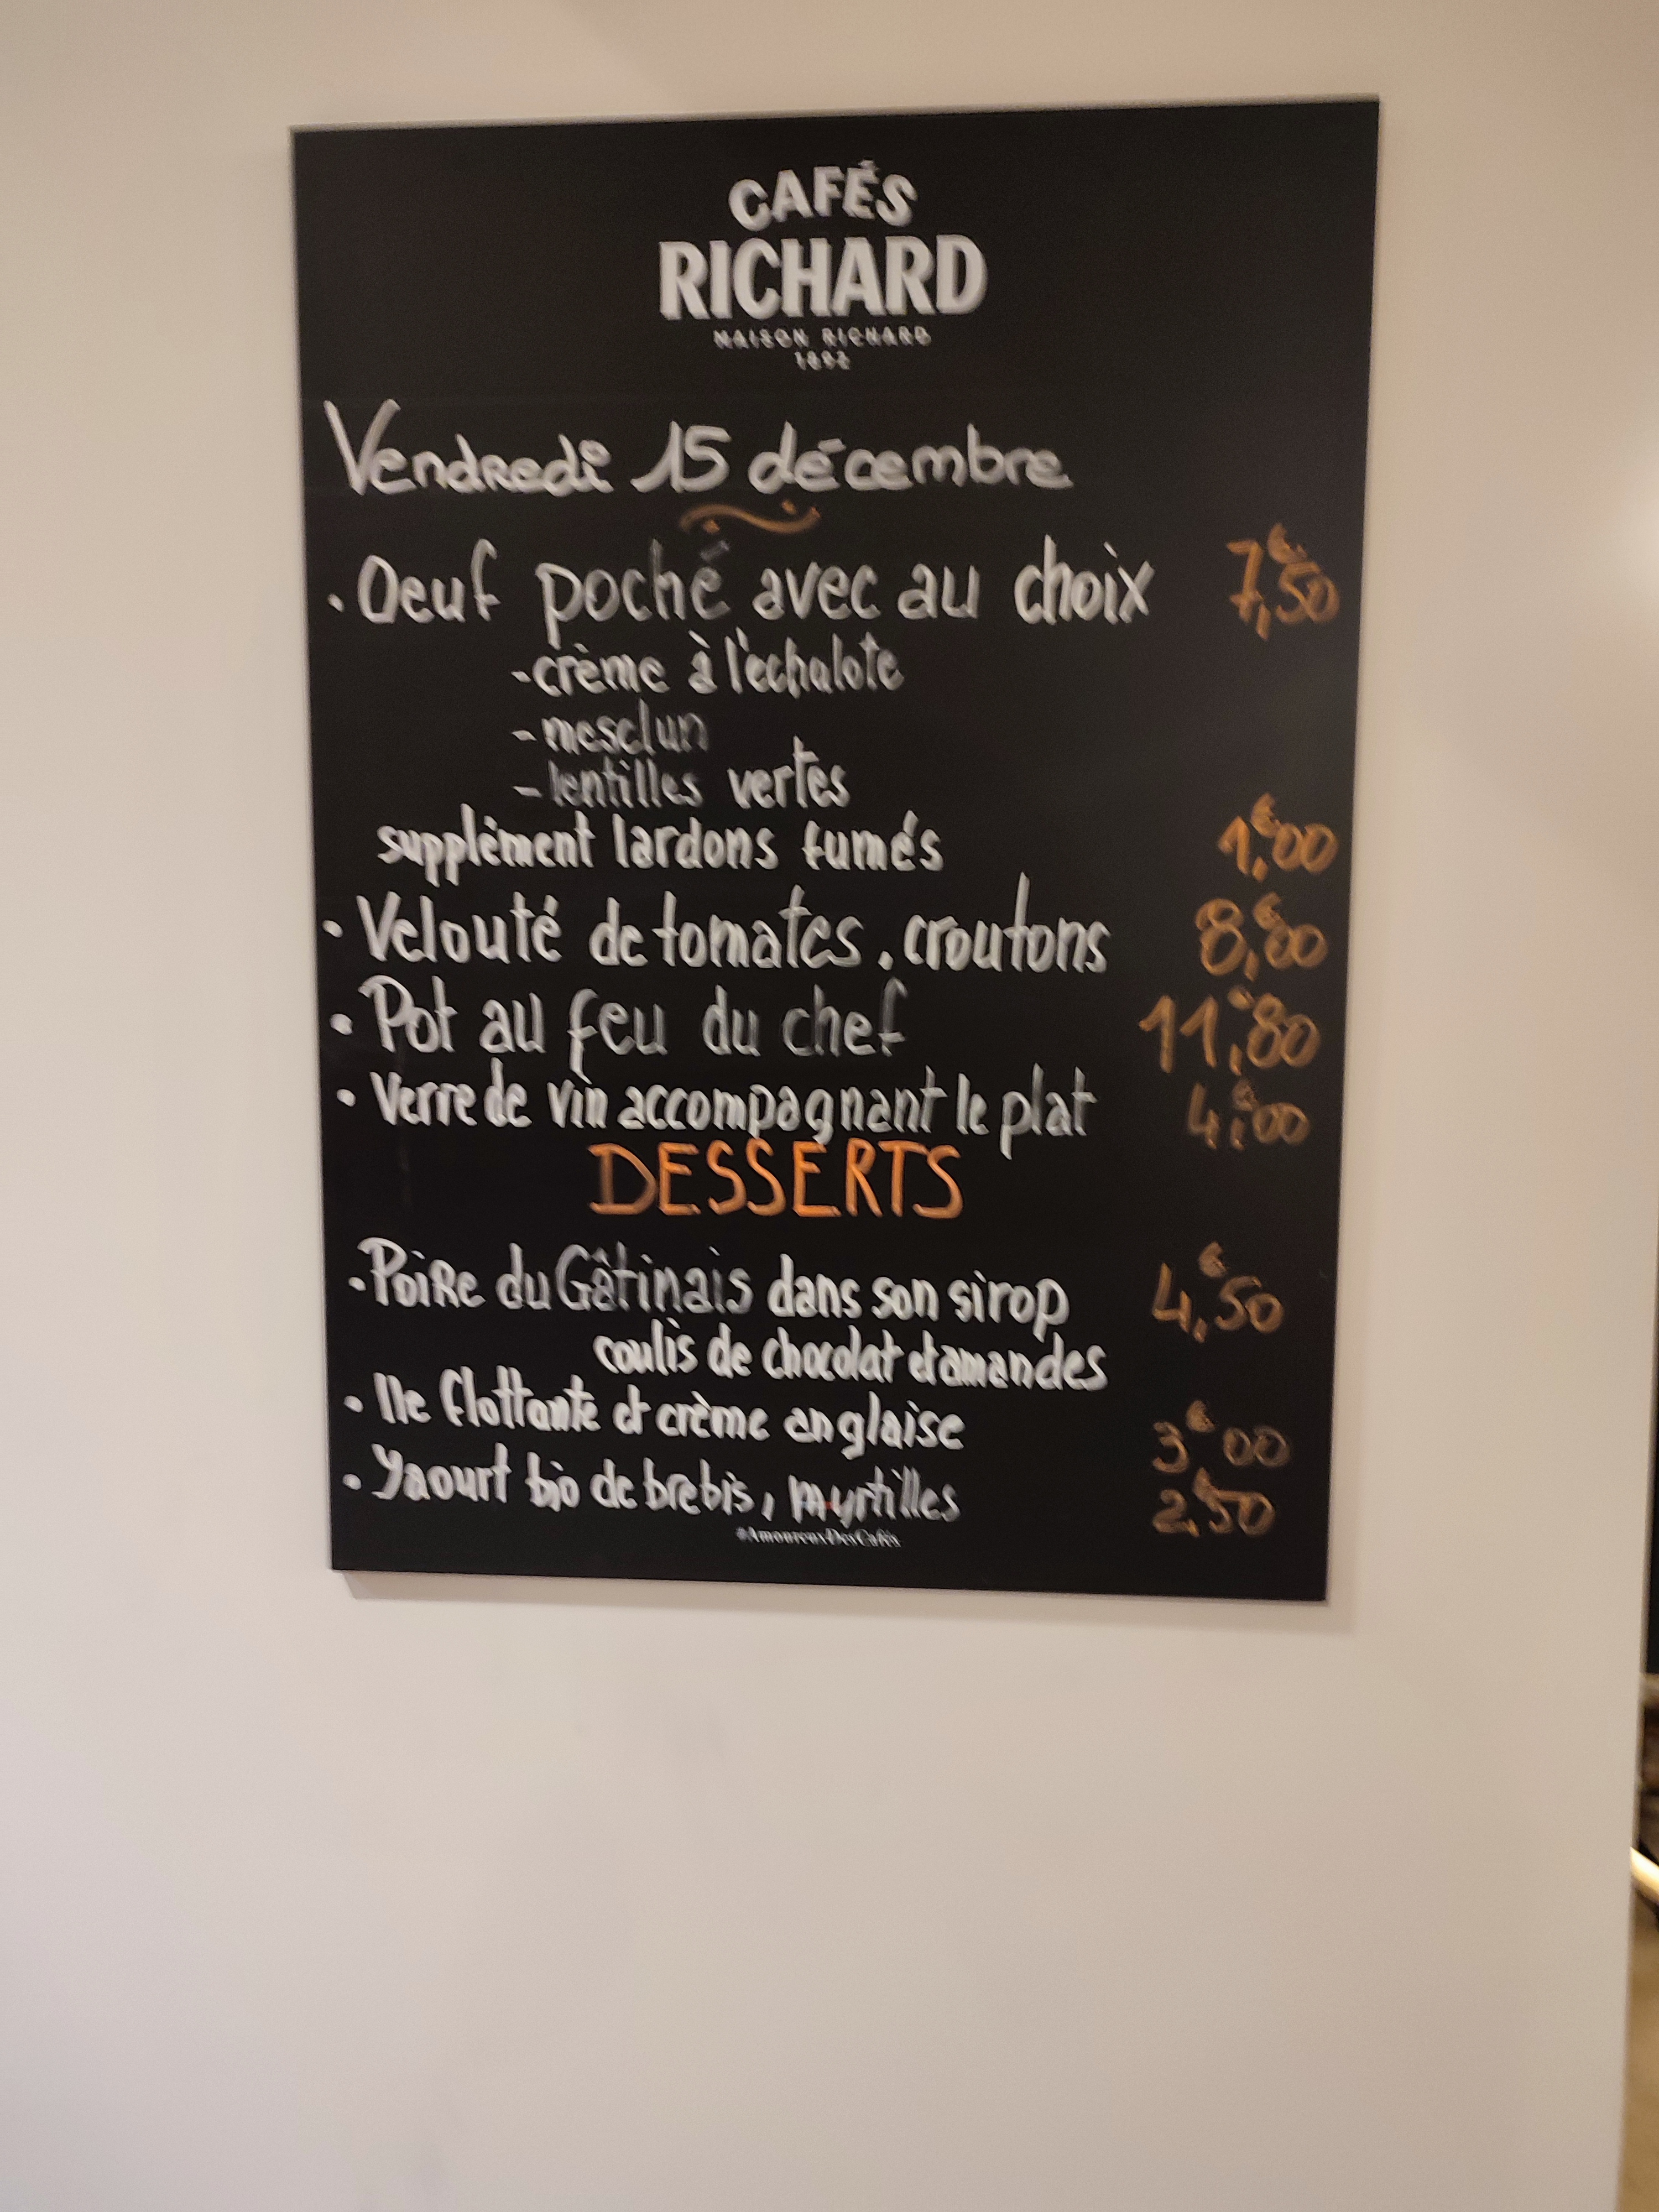 CAFÉS
RICHARD
MAISON RICHARD
1892
Vendredi 15 décembre
. Oeuf poché avec au choix 7,€50
- crème à l'echalote
- mesclun
- lentilles vertes
supplément lardons fumés 1,€00
. Velouté de tomates, croutons 8,€00
. Pot au feu du chef 11,€80
. Verre de vin accompagnant le plat 4,€00
DESSERTS
. Poire du Gâtinais dans son sirop 4,€50
coulis de chocolat et amandes
. Ile flottante et crème anglaise 3€00
. Yaourt bio de brebis, myrtilles 2,€50
#AmoureuxDesCafés